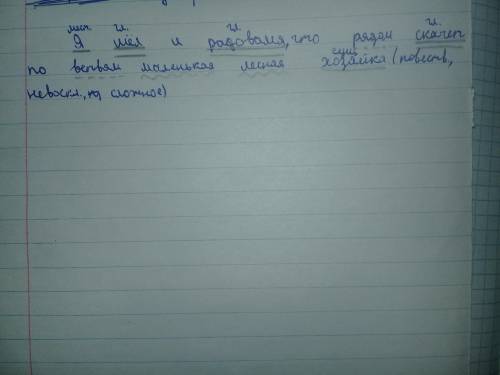 мест. гл. гл. гл.
Я шёл и радовался, что рядом скачет
сущ.
по ветвям маленькая лесная хозяйка (повеств,
невоскл., сложное)